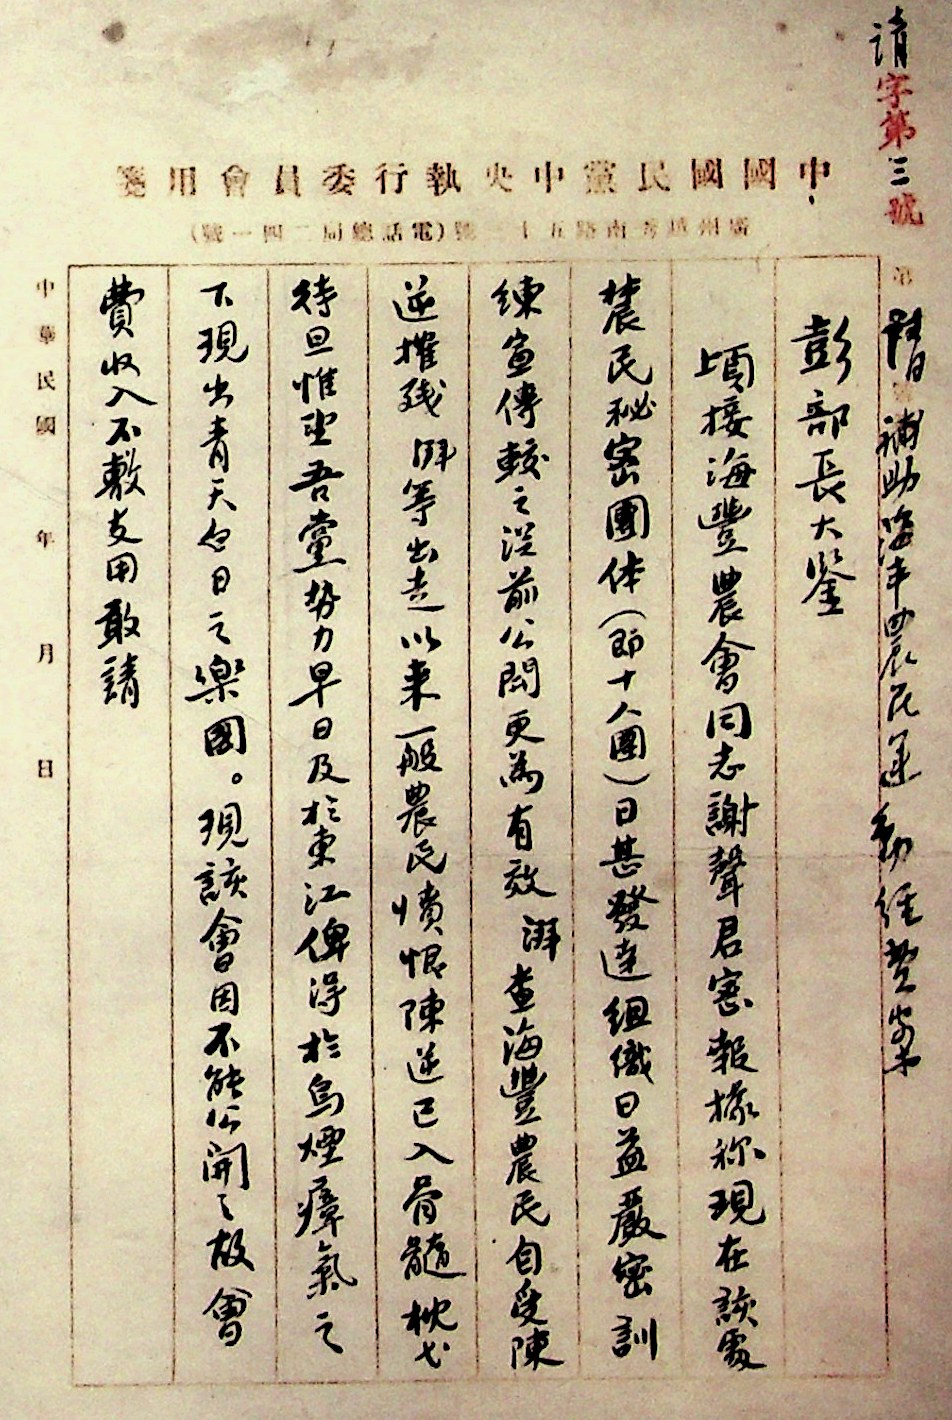 請字第三號
中國國民黨中央執行委員會用箋
廣州越秀南路五十三號(電話總局二四一號)
第 號
請補助海丰農民運動經費案
彭部長大鑒
頃接海豐農會同志謝聲君密報據称現在該處
農民秘密團体(即十人團)日甚發達組織日益嚴密訓
練宣傳較之從前公開更為有效湃查海豐農民自受陳
逆摧残湃等出走以来一般農民憤恨陳逆已入骨髓枕戈
待旦惟望吾黨势力早日及於東江俾得於烏煙瘴氣之
下現出青天白日之樂國。現該會因不能公開之故會
費收入不敷支用敢請
中華民國 年 月 日